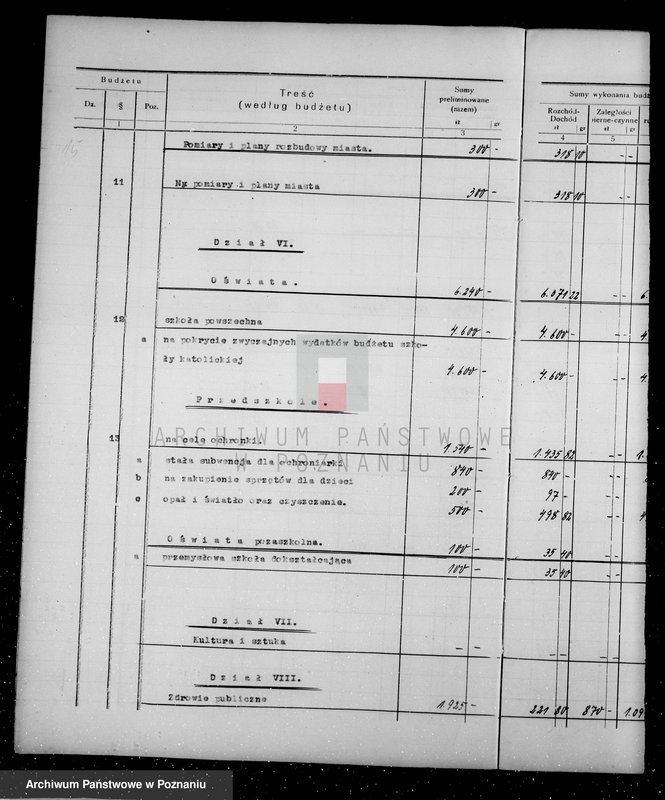 Budżetu
Dz. § Poz.
Treść
(według budżetu)
Sumy preliminowane (razem)
zł gr
Sumy wykonania budż
Rozchód-Dochód
zł gr
Zaległości
zł gr
1 2 3 4 5
Pomiary i plany rozbudowy miasta. 300 - 318 10 - -
11 Na pomiary i plany miasta 300 - 318 10 - -
Dział VI.
Oświata. 6.240 - 6.071 22 - - 6.
12 szkoła powszechna 4.600 - 4.600 - - - 4
a na pokrycie zwyczajnych wydatków budżetu szko-
ły katolickiej 4.600 - 4.600 - - - 4.
Przedszkole.
13 na cele ochronki. 1.540 - 1.435 82 - - 1.
a stała subwencja dla ochroniarki 840 - 840 - - -
b na zakupienie sprzętów dla dzieci 200 - 97 - - -
c opał i światło oraz czyszczenie. 500 - 498 82 - - 4
Oświata pozaszkolna. 100 - 35 40 - -
a przemysłowa szkoła dokształcająca 100 - 35 40 - -
Dział VII.
Kultura i sztuka - - - - - -
Dział VIII.
Zdrowie publiczne 1.925 - 221 80 870 - 1.09
ARCHIWUM PAŃSTWOWE
W POZNANIU
Archiwum Państwowe w Poznaniu